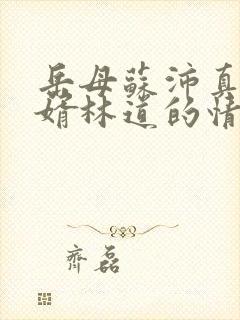 岳母蘇沛真
婿林道的情
齊磊